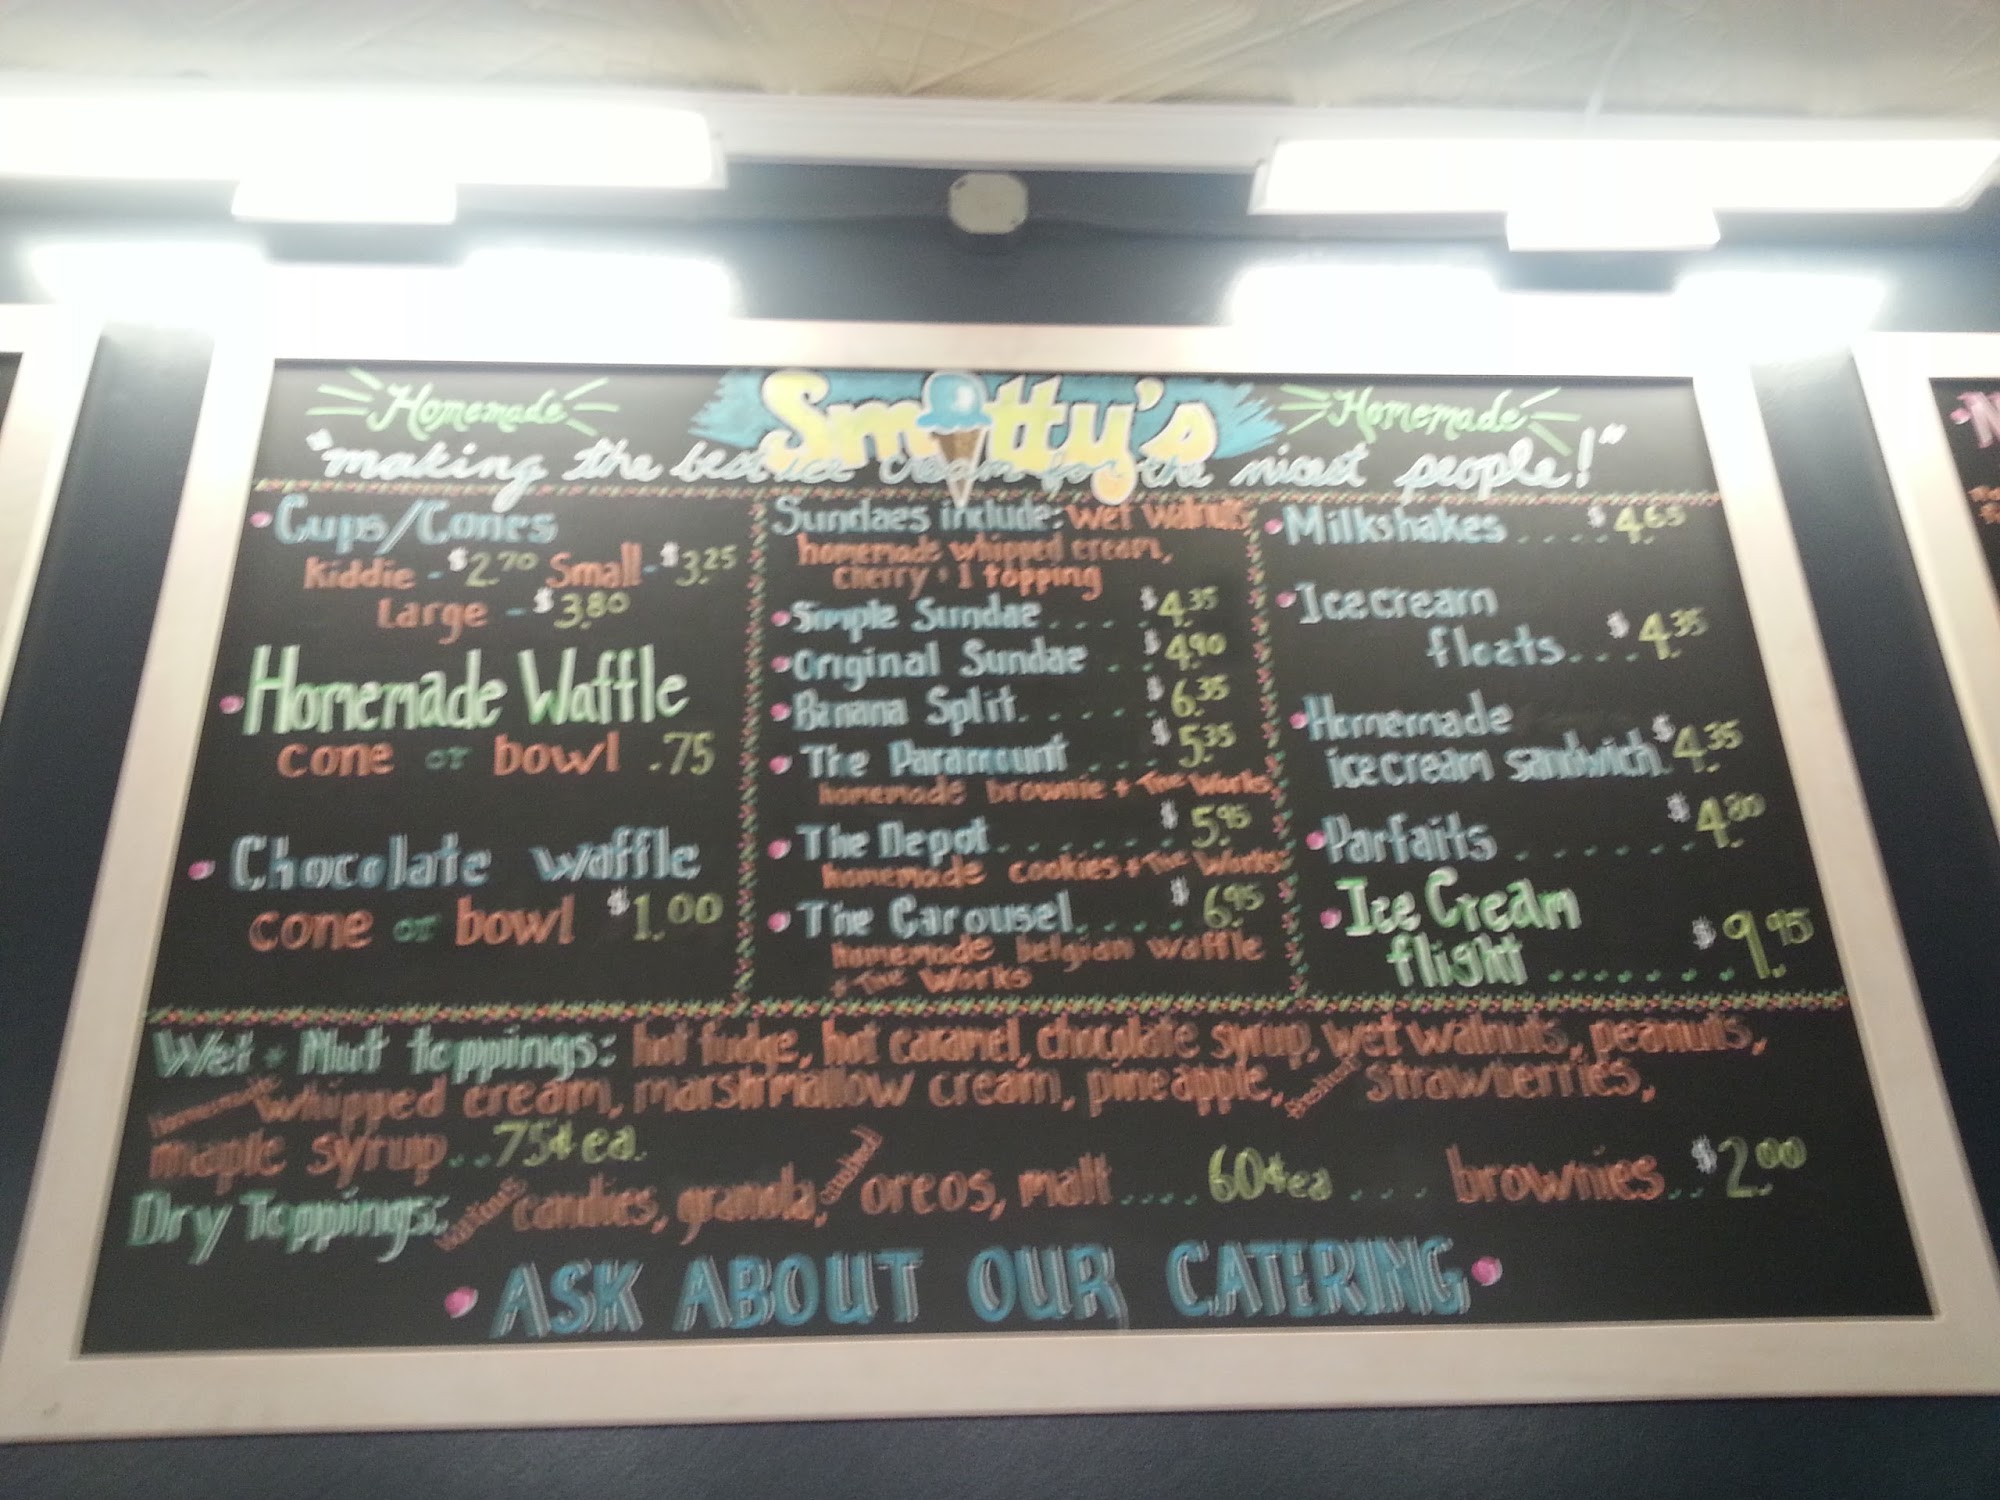 Homemade Smitty's Homemade
"making the best ice cream for the nicest people!"
Cups/Cones
Kiddie - $2.70 Small - $3.25
Large - $3.80
Homemade Waffle
cone or bowl .75
Chocolate waffle
cone or bowl $1.00
Sundaes include: wet walnuts
homemade whipped cream,
cherry + 1 topping
Simple Sundae.... $4.35
Original Sundae.. $4.90
Banana Split..... $6.35
The Paramount.... $5.35
homemade brownie + The Works
The Depot....... $5.95
homemade cookies + The Works
The Carousel..... $6.95
homemade belgian waffle
+ The Works
Milkshakes.... $4.65
Icecream
floats.... $4.35
Homemade
icecream sandwich. $4.35
Parfaits....... $4.80
Ice Cream
flight........ $9.95
Wet + Nut toppings: hot fudge, hot caramel, chocolate syrup, wet walnuts, peanuts,
Homemade whipped cream, marshmallow cream, pineapple, freshcut strawberries,
maple syrup..75¢ea.
Dry Toppings: various candies, granola, crushed oreos, malt....60¢ea.... brownies..$2.00
ASK ABOUT OUR CATERING